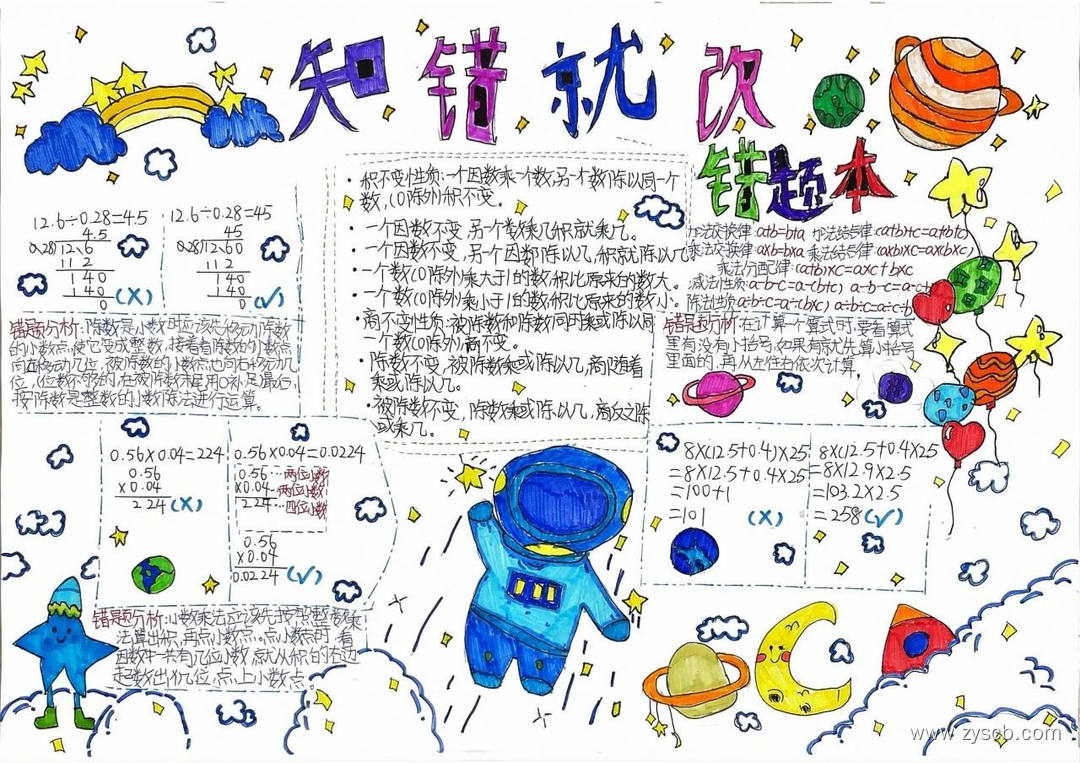 知错就改
错题本
12.6÷0.28=4.5
4.5
0.28√12.6
112
140
140
0 (×)
12.6÷0.28=45
45
0.28√12.60
112
140
140
0 (√)
错题分析:除数是小数时应该先移动除数
的小数点,使它变成整数,接着看除数的小数点
向右移动几位,被除数的小数点也向右移动几
位,(位数不够的,在被除数末尾用0补足)最后,
按除数是整数的小数除法进行运算。
0.56×0.04=224
0.56
×0.04
224 (×)
0.56×0.04=0.0224
0.56…两位小数
×0.04…两位小数
224…四位小数
0.56
×0.04
0.0224 (√)
错题分析:小数乘法应该先按照整数乘
法算出积,再点小数点。点小数点时,看
因数中一共有几位小数,就从积的右边
起数出几位,点上小数点。
·积不变性质:一个因数乘一个数,另一个数除以同一个
数,(0除外)积不变。
·一个因数不变,另一个数乘几积就乘几。
·一个因数不变,另一个因数除以几,积就除以几
·一个数(0除外)乘大于1的数积比原来的数大。
·一个数(0除外)乘小于1的数积比原来的数小。
·商不变性质:被除数和除数同时乘或除以同
一个数(0除外)商不变。
·除数不变,被除数乘或除以几,商随着
乘或除以几。
·被除数不变,除数乘或除以几,商反之除
或乘几。
加法交换律:a+b=b+a 加法结合律:(a+b)+c=a+(b+c)
乘法交换律:a×b=b×a 乘法结合律:(a×b)×c=a×(b×c)
乘法分配律:(a+b)×c=a×c+b×c
减法性质:a-b-c=a-(b+c) a-b-c=a-c-b
除法性质:a÷b÷c=a÷(b×c) a÷b÷c=a÷c÷b
错题分析:在计算一个算式时,要看算式
里有没有小括号,如果有就先算小括号
里面的,再从左往右依次计算。
8×(12.5+0.4)×25
=8×12.5+0.4×25
=100+1
=101 (×)
8×(12.5+0.4)×25
=8×12.9×2.5
=103.2×2.5
=258 (√)
www.zyscb.com